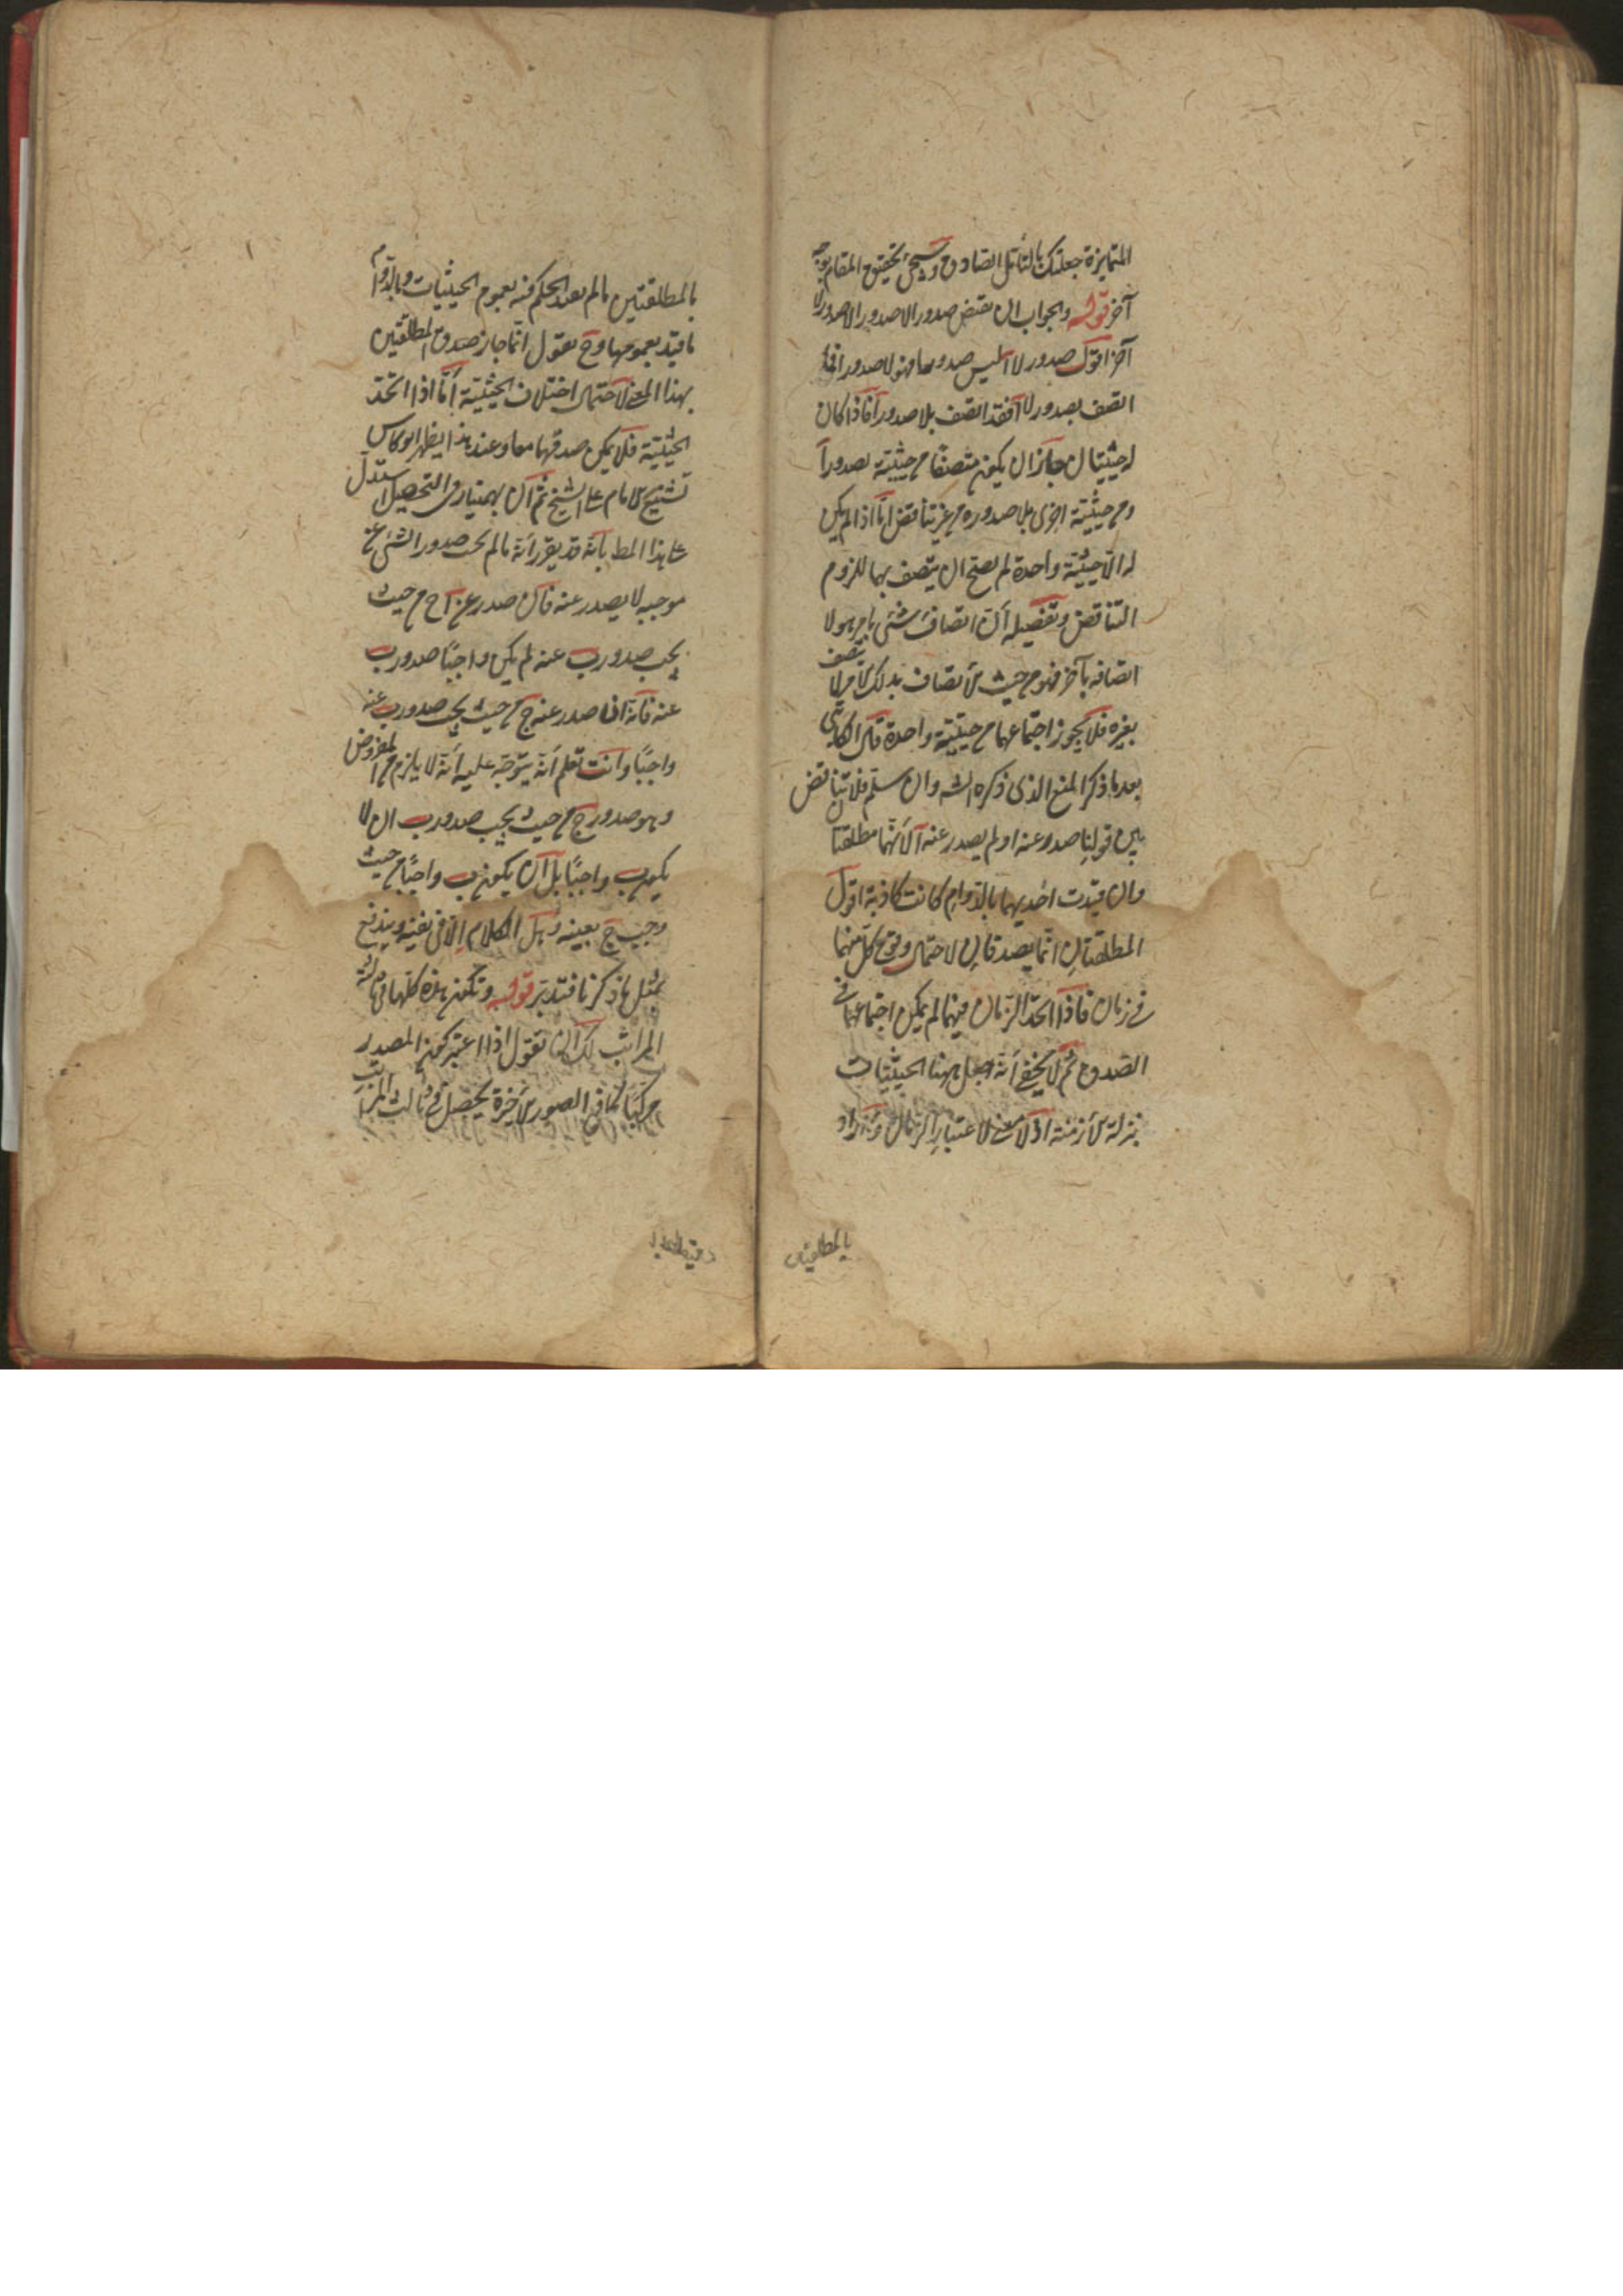 المتمايزة جعلتك بالتأمل الصادق وسيجئ تحقيق المقام بوجه
آخر قوله والجواب ان نقيض صدور الا صدور الا صدور لا
آخر اقول صدور لا ا ليس صدور ا فهو لا صدور ا فما
اتصف بصدور لا ا فقد اتصف بلا صدور ا فاذا كان
له حيثيتان جاز ان يكون متصفا من حيثية بصدور ا
ومن حيثية اخرى بلا صدوره من غير تناقض اما اذا لم يكن
له الا حيثية واحدة لم يصح ان يتصف بهما للزوم
التناقض وتفصيله ان اتصاف شئ بامر هو لا
اتصافه بآخر فهو من حيث الاتصاف بذلك الامر لا يتصف
بغيره فلا يجوز اجتماعهما من حيثية واحدة قال الكاتبى
بعد ما ذكر المنع الذى ذكره الشه وان سلم فلا تناقض
بين قولنا صدر عنه ا ولم يصدر عنه ا لانهما مطلقتا
وان قيدت احديهما بالدوام كانت كاذبة اقول
المطلقتان انما يصدقان لاحتمال وقوع كل منهما
فى زمان فاذا اتحد الزمان فيهما لم يمكن اجتماعهما فى
الصدق ثم لا يخفى انه اجعل ههنا الحيثيات
بمنزلة الازمنة اذ لا معنى لاعتبار الزمان واراد
بالمطلقتين
بالمطلقتين ما لم يقيد الحكم فيه بعموم الحيثيات وبالدوام
ما قيد بعمومها وح نقول انما جاز صدق المطلقتين
بهذا المعنى لاحتمال اختلاف الحيثية اما اذا اتحد
الحيثية فلا يمكن صدقهما معا وعند هذا يظهر انعكاس
تشنيع الامام على الشيخ ثم ان بهمنيار فى التحصيل استدل
على هذا المط بانه قد يقرر انه ما لم يجب صدور الشئ عن
موجبه لا يصدر عنه فان صدر عن ا ج من حيث
يجب صدور ب عنه لم يكن واجبا صدور ب
عنه فانه اذا صدر عنه ج من حيث يجب صدور ب عنه
واجبا وانت تعلم انه يتوجه عليه انه لا يلزم من المفروض
وهو صدور ج من حيث يجب صدور ب ان لا
يكون ب واجبا بل ان يكون ب واجبا من حيث
وجب ج بعينه وهل الكلام الا فى نفيه ويندفع
بمثل ما ذكرنا فتدبر قوله وتكون هذه كلها فى ثالثة
المراتب لك ان تقول اذا اعتبر كون المصدر
مركبا كما فى الصور الاخيرة يحصل فى ثالث المراتب